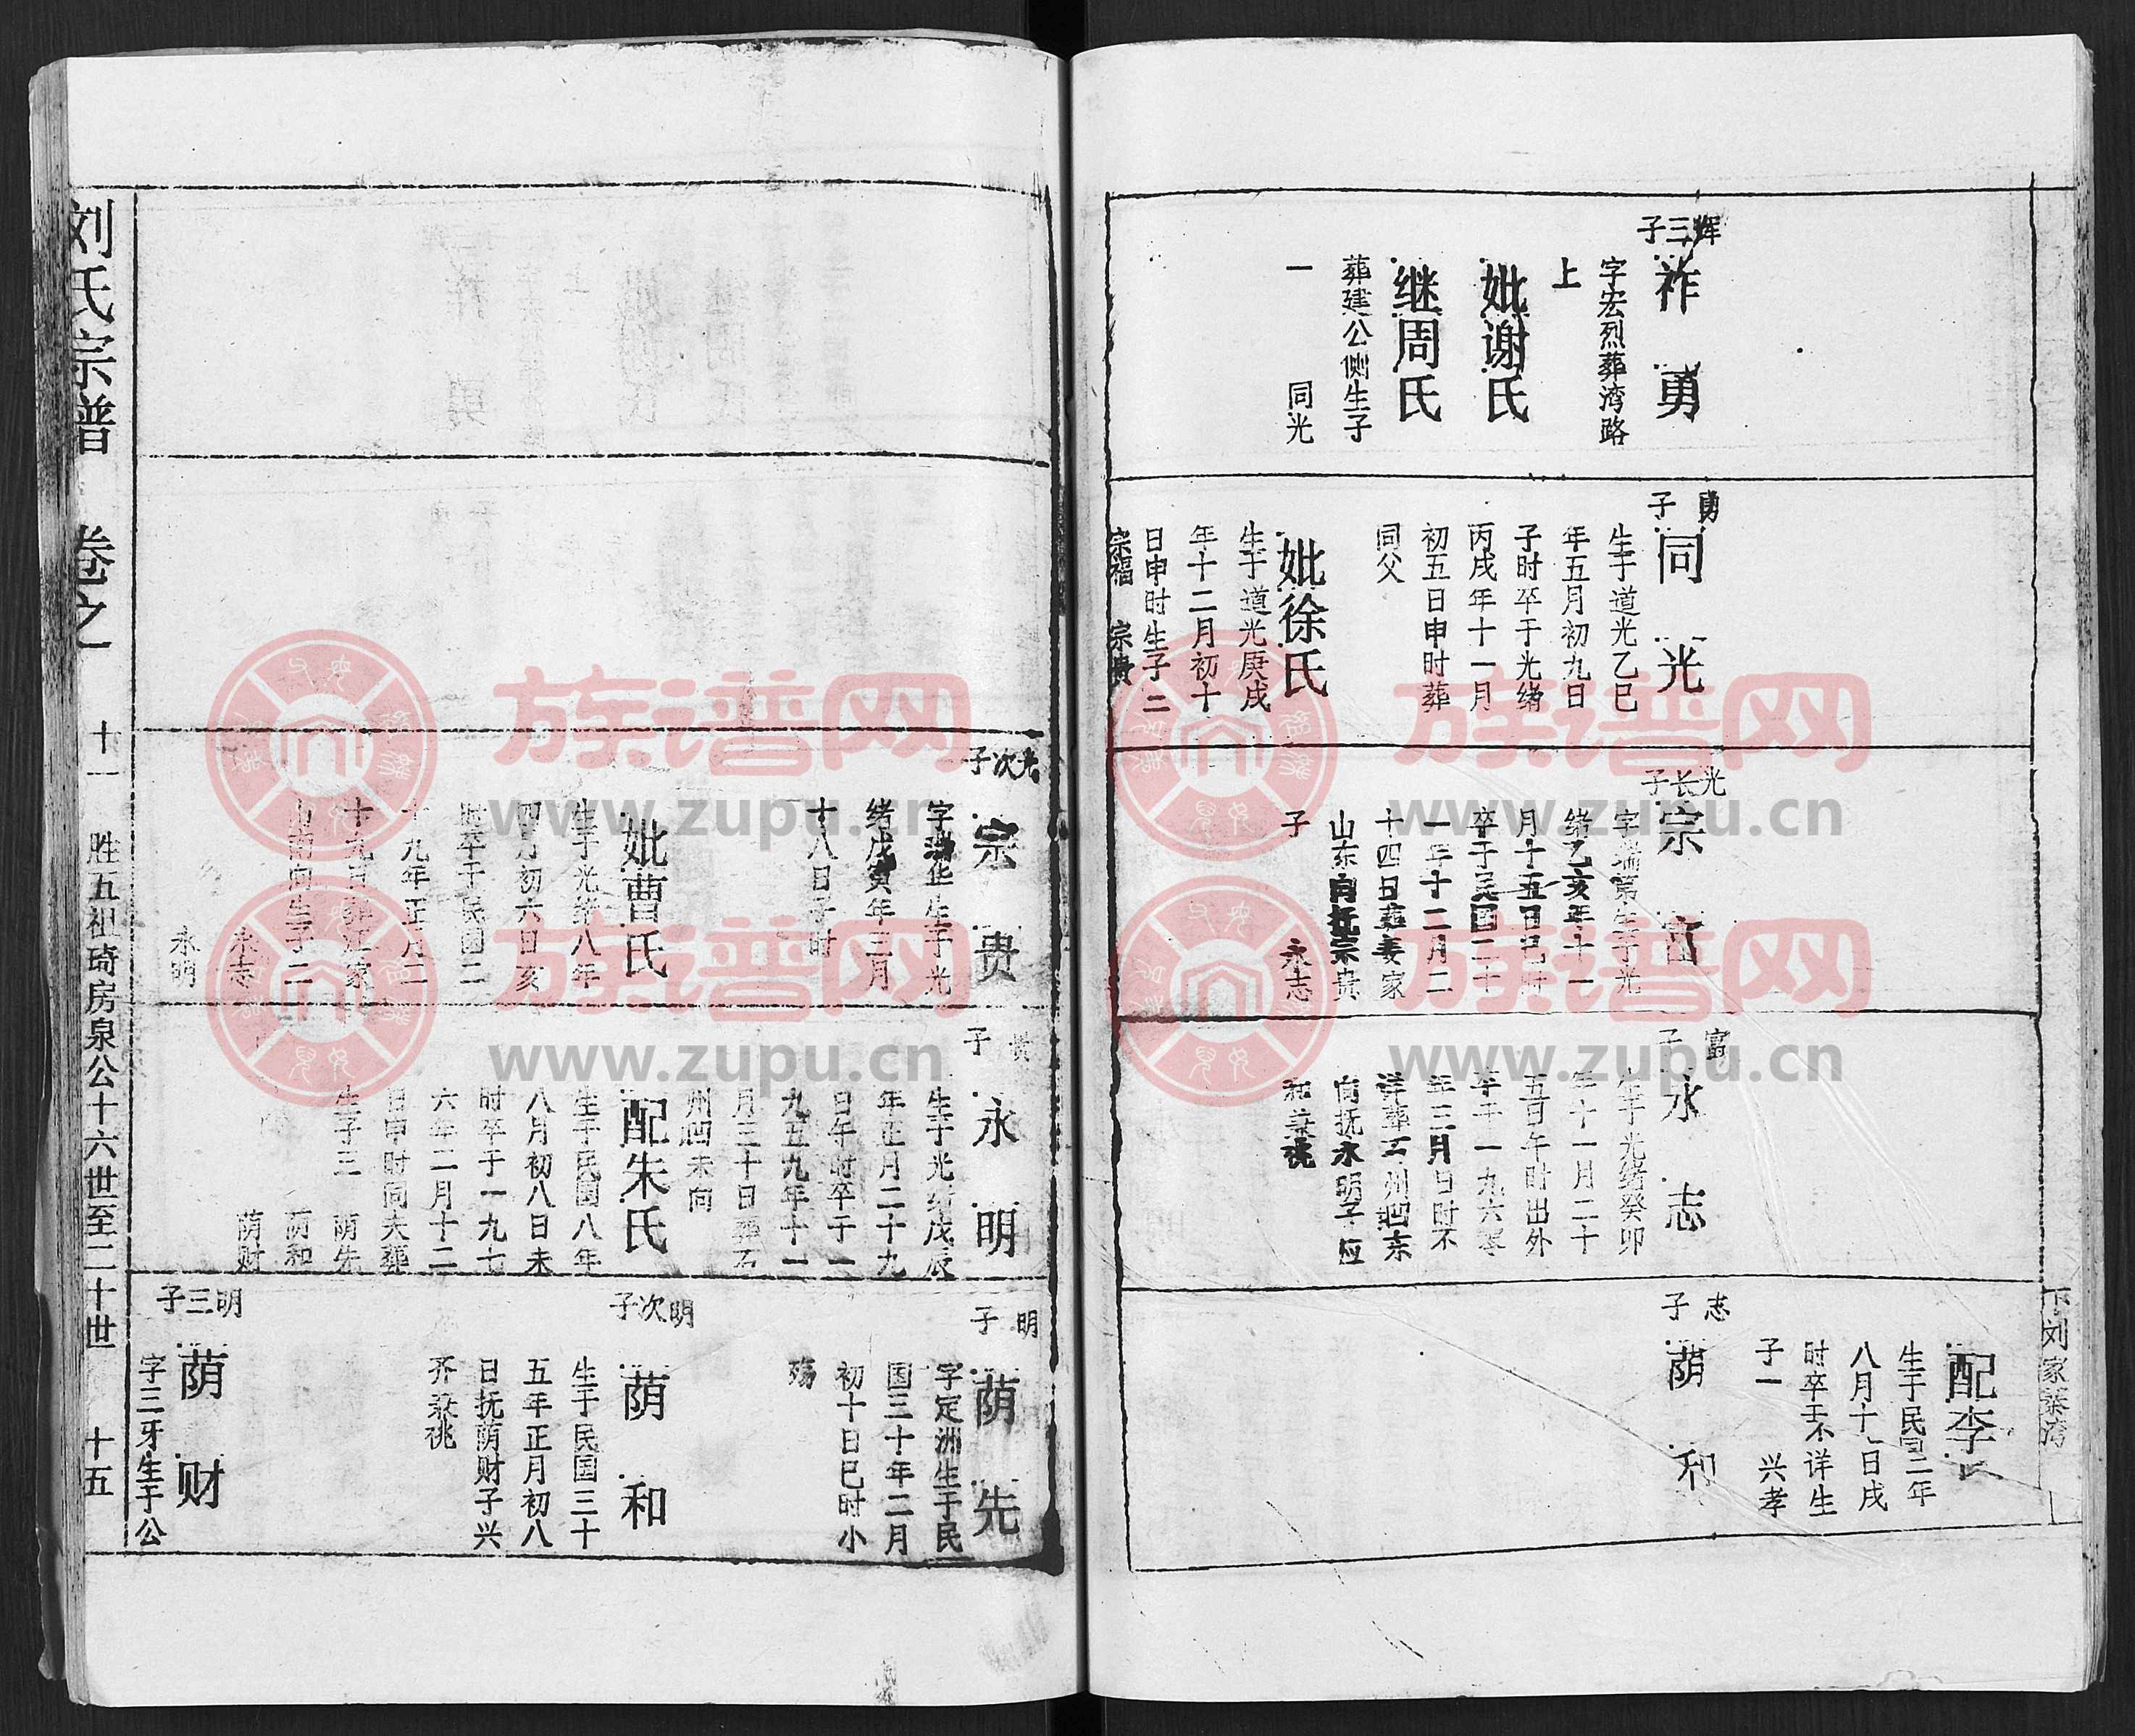 下刘家寨湾
配李氏
生于民国二年
八月十一日戌
时卒王不详生
子一 兴孝
辉三子
祚勇
字宏烈葬湾路
上
妣谢氏
继周氏
葬建公侧生子
一 同光
勇子
同光
生于道光乙巳
年五月初九日
子时卒于光绪
丙戌年十一月
初五日申时葬
同父
妣徐氏
生于道光庚戌
年十二月初十
日申时生子二
宗福 宗贵
光长子
宗富
字瑞第生于光
绪乙亥年十一
月十五日巳时
卒于民国二十
一年十二月二
十四日葬姜家
山东向抚宗贵
子 永志
富子
永志
生于光绪癸卯
年十一月二十
五日午时出外
卒于一九六零
年三月日时不
详葬石州凹东
向抚永明子应
和兼祧
志子
荫和
光次子
宗贵
绪戊寅年三月
十八日子时
妣曹氏
生于光绪八年
四月初六日亥
时卒于民国二
十九年正月二
十九日葬江家
山南向生子二
永志
永明
贵子
永明
生于光绪戊辰
年正月二十九
日午时卒于一
九五九年十一
月三十日葬石
州凹未向
配朱氏
生于民国八年
八月初八日未
时卒于一九七
六年二月十二
日申时同夫葬
生子三 荫先
荫和
荫财
明子
荫先
字定洲生于民
国三十年二月
初十日巳时小
殇
明次子
荫和
生于民国三十
五年正月初八
日抚荫财子兴
齐兼祧
明三子
荫财
字三牙生于公
刘氏宗谱 卷之一 十一 胜五祖琦房泉公十六世至二十世 十五
族谱网
www.zupu.cn
族谱网
www.zupu.cn
族谱网
www.zupu.cn
族谱网
www.zupu.cn